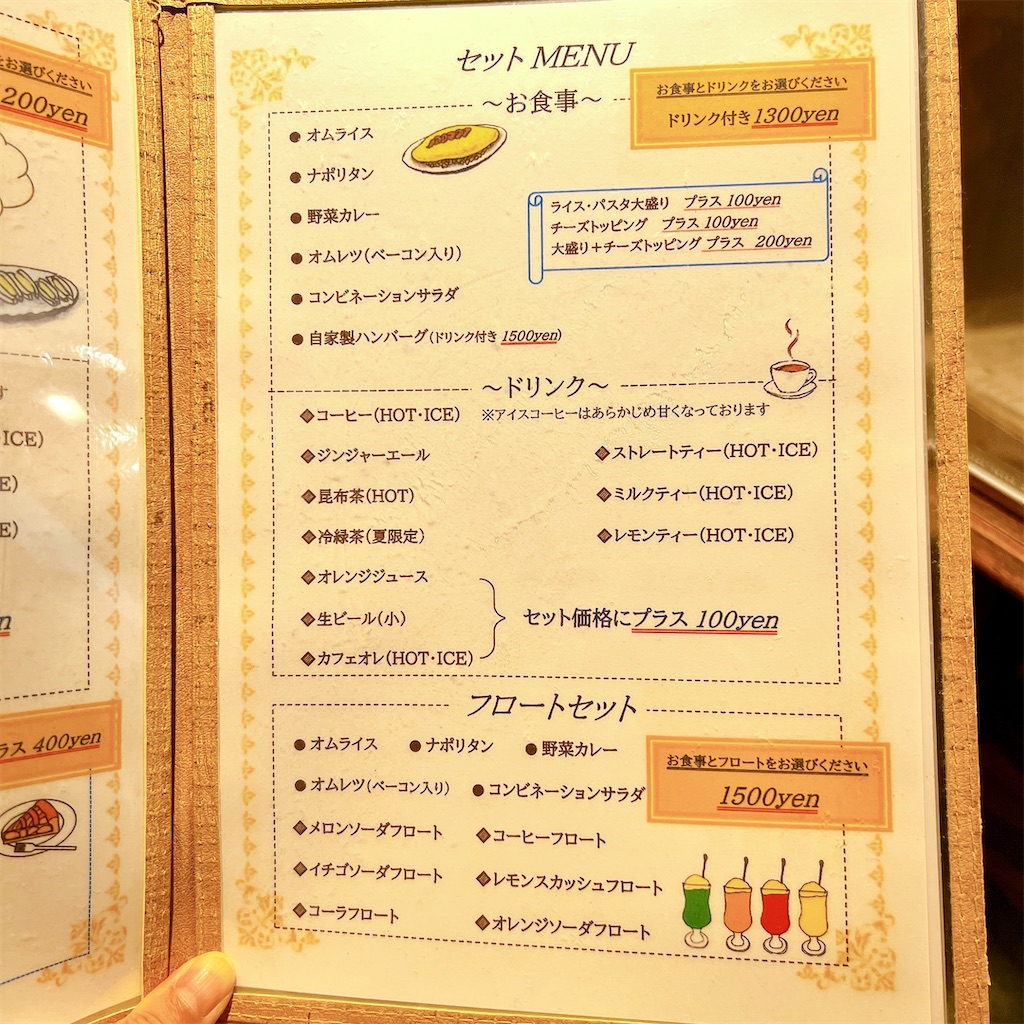 をお選びください
200yen
す
・ICE)
E)
E)
n
ラス 400yen
セット MENU
お食事とドリンクをお選びください
ドリンク付き1300yen
～お食事～
●オムライス
●ナポリタン
●野菜カレー
●オムレツ(ベーコン入り)
●コンビネーションサラダ
●自家製ハンバーグ(ドリンク付き 1500yen)
ライス・パスタ大盛り プラス 100yen
チーズトッピング プラス 100yen
大盛り＋チーズトッピング プラス 200yen
～ドリンク～
◆コーヒー(HOT・ICE) ※アイスコーヒーはあらかじめ甘くなっております
◆ジンジャーエール
◆昆布茶(HOT)
◆冷緑茶(夏限定)
◆オレンジジュース
◆生ビール(小)
◆カフェオレ(HOT・ICE)
◆ストレートティー(HOT・ICE)
◆ミルクティー(HOT・ICE)
◆レモンティー(HOT・ICE)
セット価格にプラス 100yen
フロートセット
お食事とフロートをお選びください
1500yen
●オムライス ●ナポリタン ●野菜カレー
●オムレツ(ベーコン入り) ●コンビネーションサラダ
◆メロンソーダフロート ◆コーヒーフロート
◆イチゴソーダフロート ◆レモンスカッシュフロート
◆コーラフロート ◆オレンジソーダフロート